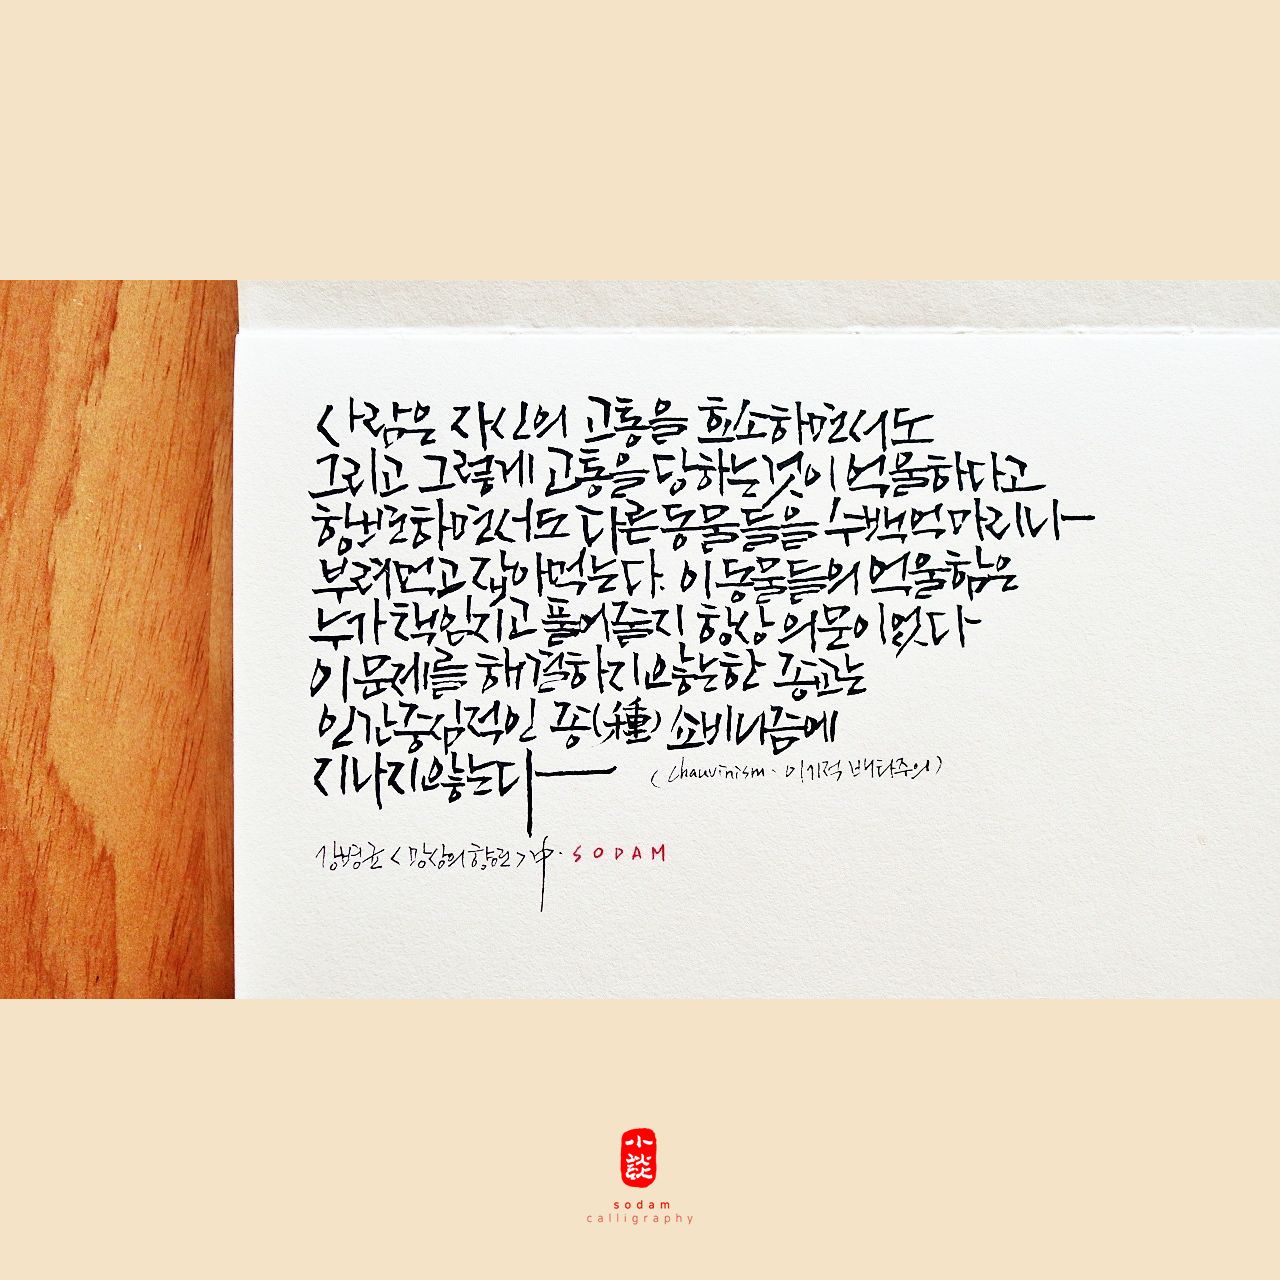 사람은 자신의 고통을 호소하면서도
그리고 그렇게 고통을 당하는것이 억울하다고
항변하면서도 다른동물들을 수백억마리나
부려먹고 잡아먹는다. 이 동물들의 억울함은
누가 책임지고 풀어줄지 항상 의문이었다
이 문제를 해결하지않는한 종교는
인간중심적인 종(種) 쇼비니즘에
지나지않는다
(chauvinism. 이기적 배타주의)
강병균 <망상의향연> 中. SODAM
小談
sodam
calligraphy